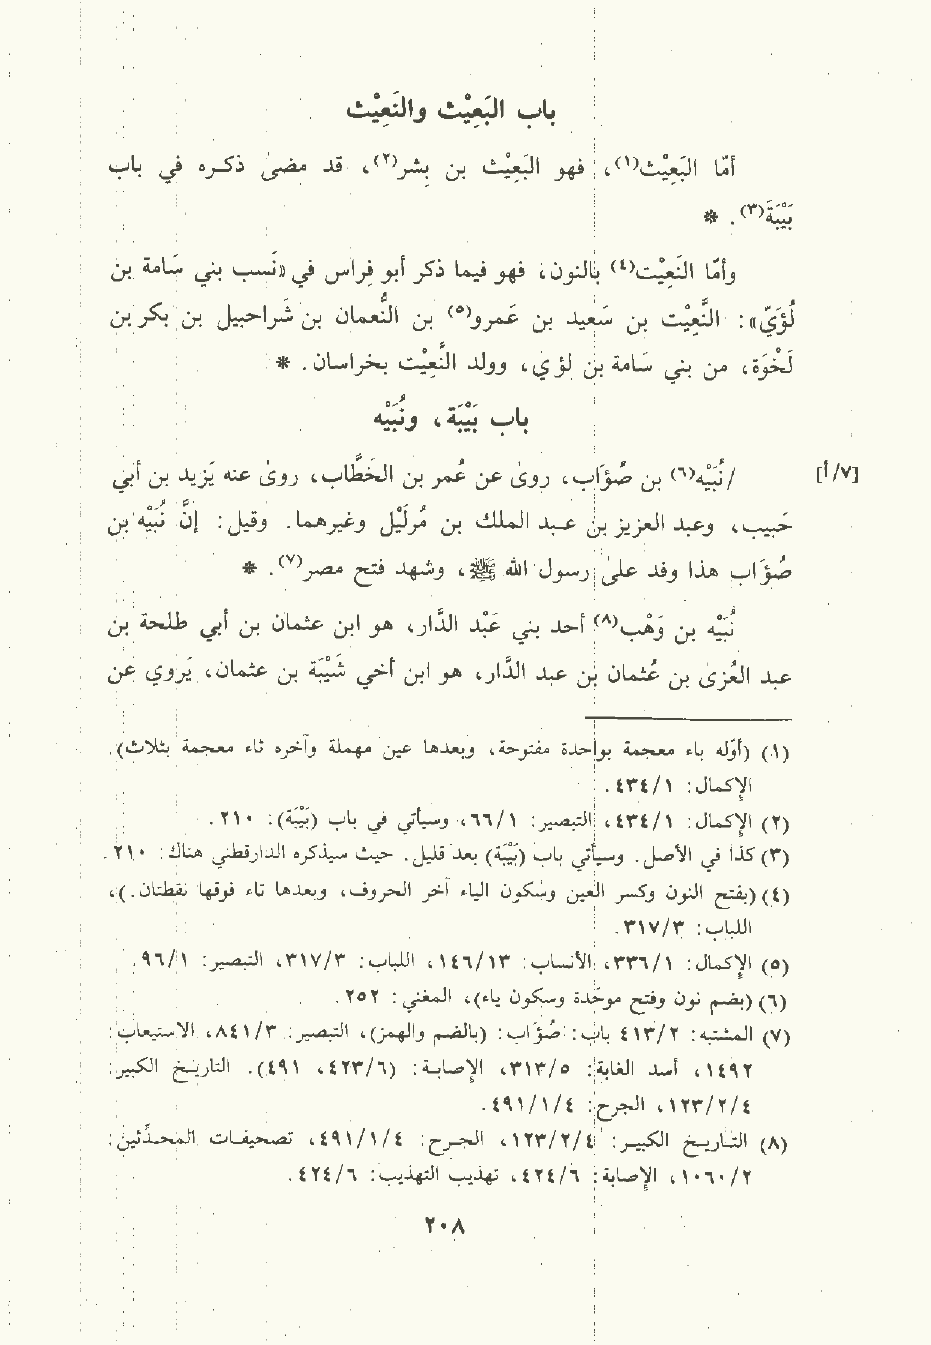 باب البَعِيْث والنَعِيْت
أمّا البَعِيْث(١)، فهو البَعِيْث بن بِشر(٢)، قد مضىٰ ذكره في باب
بَيْبَةَ(٣). *
وأمّا النَعِيْت(٤) بالنون، فهو فيما ذكر أبو فِراس في «نَسب بني سَامة بن
لُؤَيّ»: النُّعِيْت بن سَعيد بن عَمرو(٥) بن النُّعمان بن شَراحبيل بن بكر بن
لَخْوَة، من بني سَامة بن لؤي، وولد النَّعِيْت بخراسان. *
باب بَيْبَة، ونُبَيْه
[٧/أ] /نُبَيْه(٦) بن صُؤَاب، روىٰ عن عُمر بن الخَطَّاب، روىٰ عنه يَزيد بن أبي
حَبيب، وعبد العزيز بن عبد الملك بن مُرلَيْل وغيرهما. وقيل: إنَّ نُبَيْه بن
صُؤَاب هذا وفد علىٰ رسول الله ﷺ، وشهد فتح مصر(٧). *
نُبَيْه بن وَهْب(٨) أحد بني عَبْد الدَّار، هو ابن عثمان بن أبي طلحة بن
عبد العُزىٰ بن عُثمان بن عبد الدَّار، هو ابن أخي شَيْبَة بن عثمان، يَروي عن
(١) (أوّله باء معجمة بواحدة مفتوحة، وبعدها عين مهملة وآخره ثاء معجمة بثلاث).
الإكمال: ٤٣٤/١.
(٢) الإكمال: ٤٣٤/١، التبصير: ٦٦/١، وسيأتي في باب (بَيْبَة): ٢١٠.
(٣) كذا في الأصل. وسيأتي باب (بَيْبَة) بعد قليل. حيث سيذكره الدارقطني هناك: ٢١٠.
(٤) (بفتح النون وكسر العين وسُكون الياء آخر الحروف، وبعدها تاء فوقها نقطتان.)،
اللباب: ٣١٧/٣.
(٥) الإكمال: ٣٣٦/١، الأنساب: ١٤٦/١٣، اللباب: ٣١٧/٣، التبصير: ٩٦/١.
(٦) (بضم نون وفتح موحَدة وسكون ياء)، المغني: ٢٥٢.
(٧) المشتبه: ٤١٣/٢ باب: صُؤَاب: (بالضم والهمز)، التبصير: ٨٤١/٣، الاستيعاب:
١٤٩٢، أسد الغابة: ٣١٣/٥، الإصابة: (٤٢٣/٦، ٤٩١). التاريخ الكبير:
١٢٣/٢/٤، الجرح: ٤٩١/١/٤.
(٨) التاريخ الكبير: ١٢٣/٢/٤، الجرح: ٤٩١/١/٤، تصحيفات المحدِّثين:
١٠٦٠/٢، الإصابة: ٤٢٤/٦، تهذيب التهذيب: ٤٢٤/٦.
٢٠٨